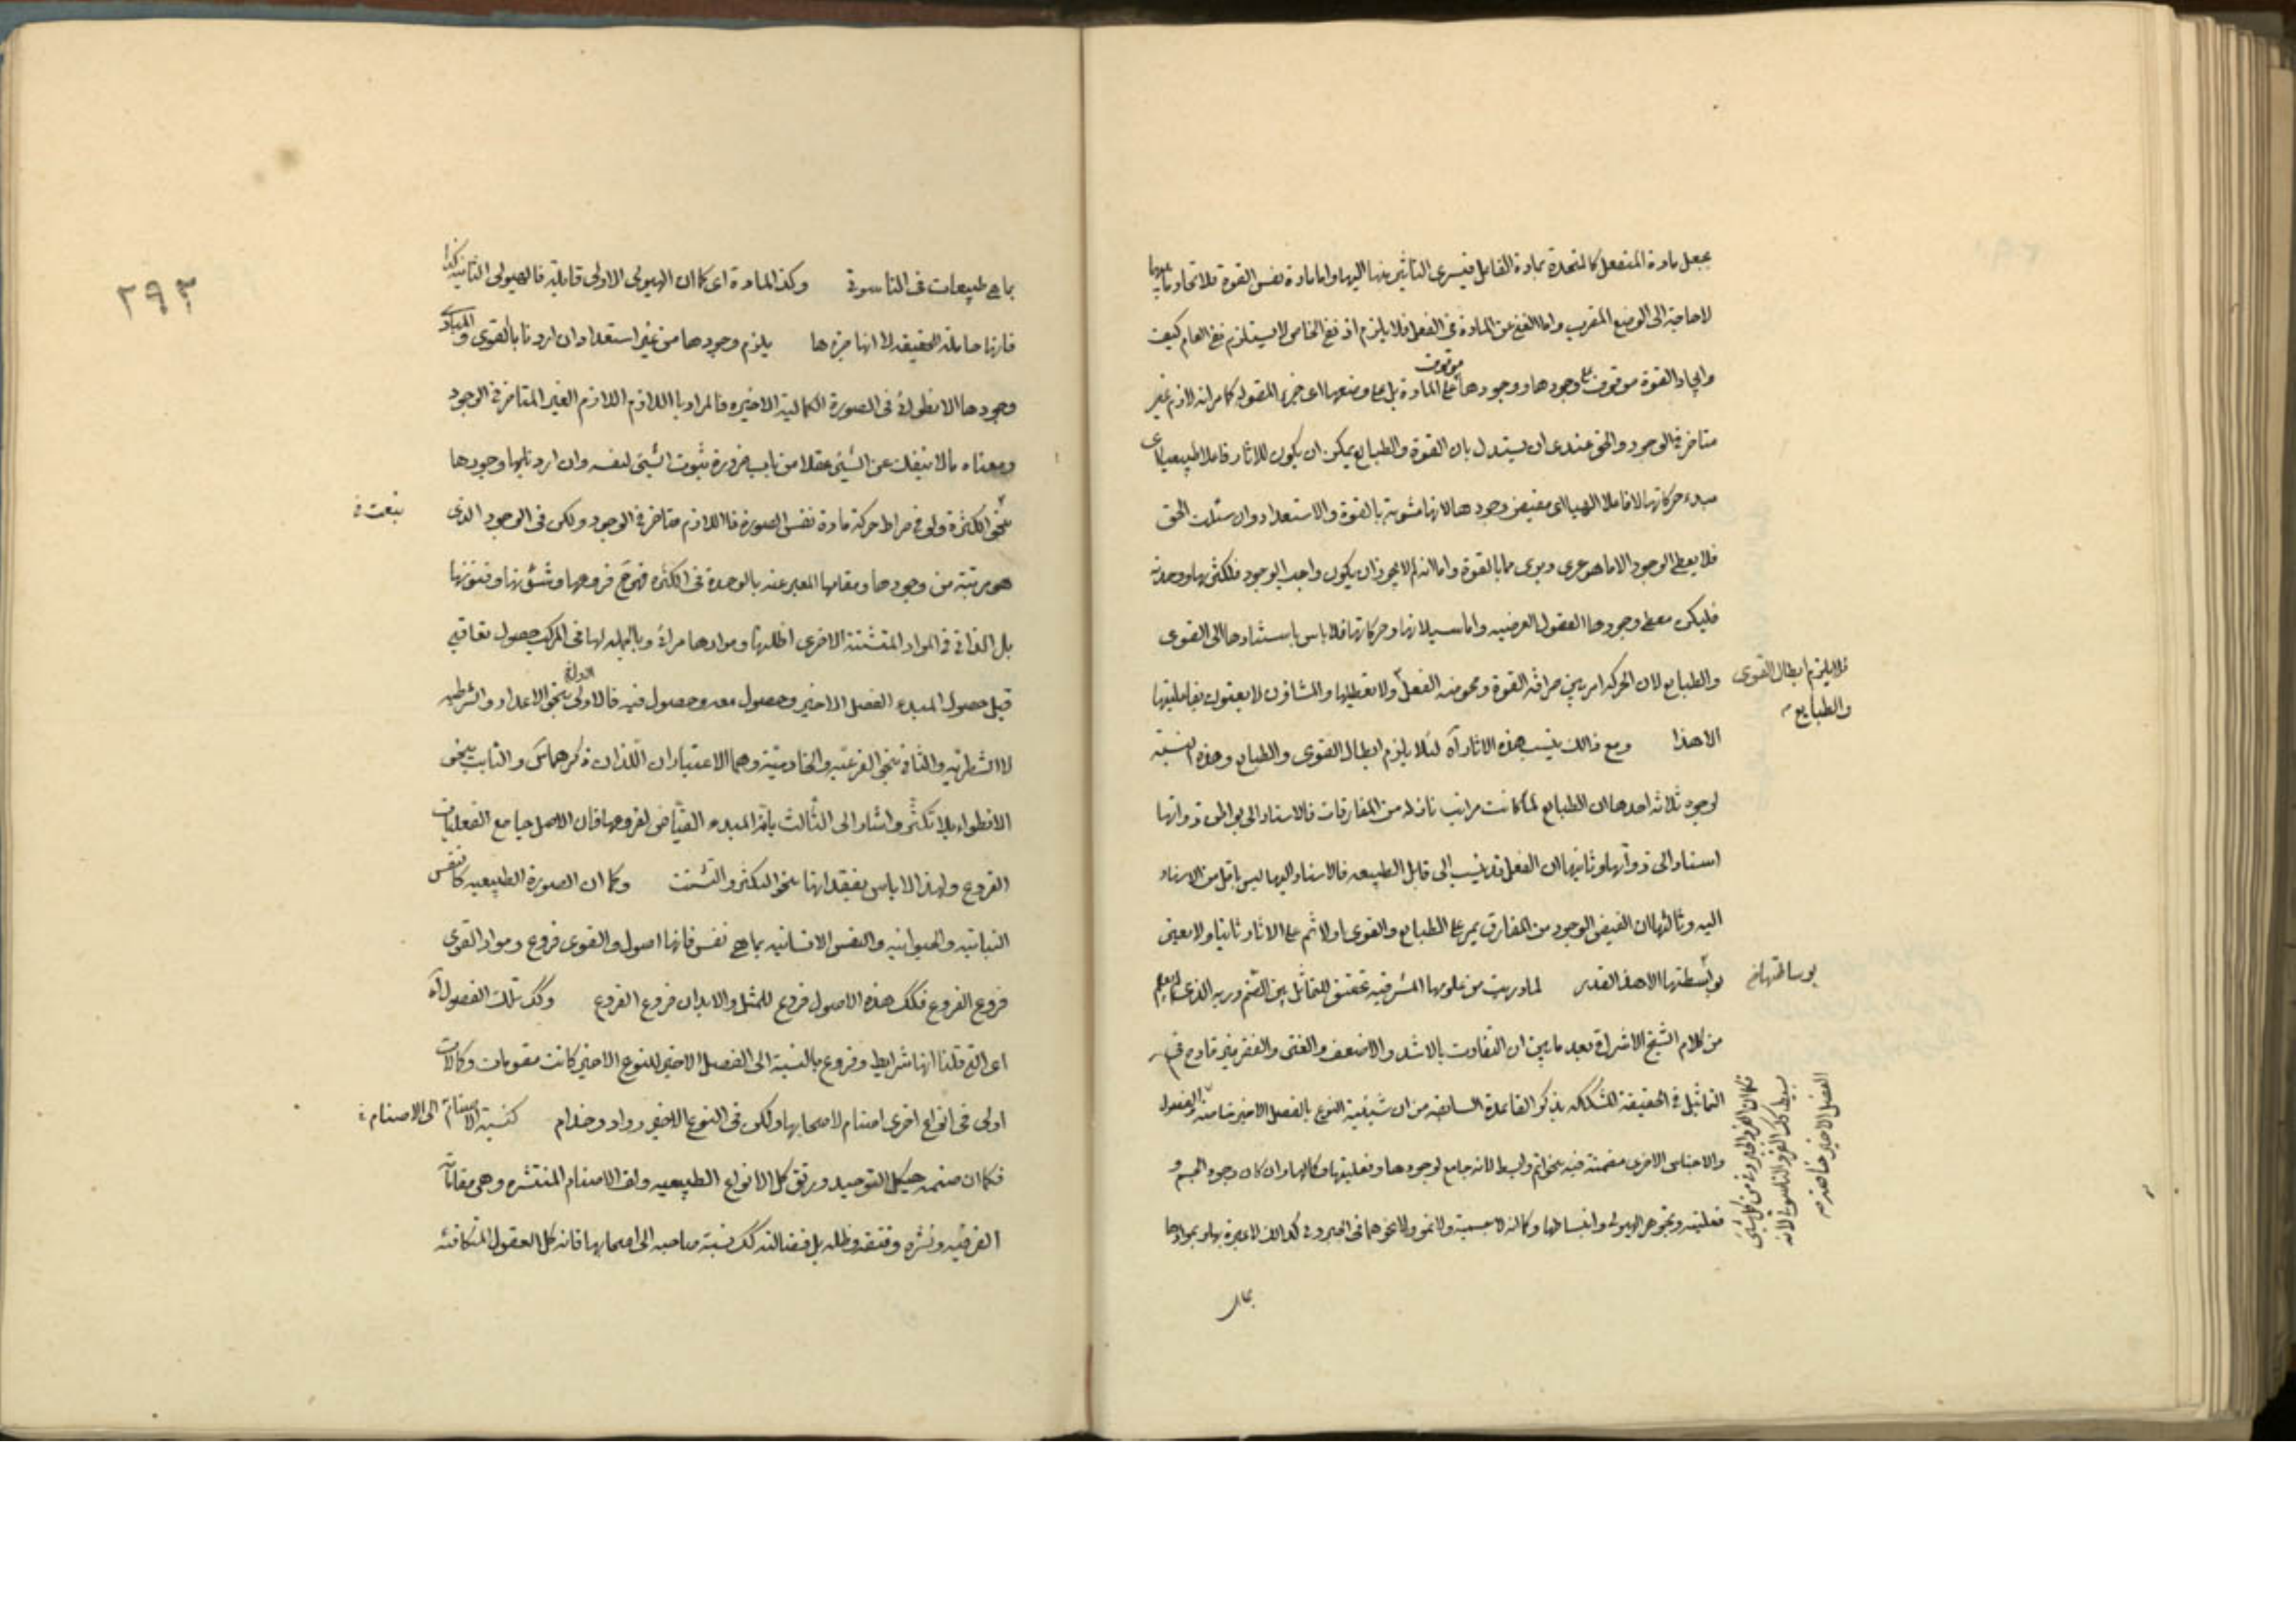 يجعل مادة المنفعل كالمتحدة بمادة الفاعل فيسرى التاثير منها اليها واما مادة نفس القوة فلاتحادها بها
لا حاجة الى الوضع المقرب واما الغنى عن المادة فى الفعل فلا يلزم اذ رفع الخاص لا يستلزم رفع العام كيف
وايجاد القوة موقوف على وجودها ووجودها موقوف على المادة بل على وضعها اى جزء المقولة كما مر انه لازم غير
متاخر فى الوجود والحق عندى ان يستدل بان القوة والطبايع يمكن ان يكون للاثار فاعلا طبيعيا اى
مبدء حركاتها لا فاعلا الهيا اى مفيض وجودها لانها مشوبة بالقوة والاستعداد وان سئلت الحق
فلا يعطى الوجود الا ما هو عرى وبرى ما بالقوة واما انه لم لا يجوز ان يكون واجب الوجود فلكثرتها ووحدته
فليكن معطى وجودها العقول العرضيه واما سيلانها وحركاتها فلا باس باستنادها الى القوى
والطبايع لان الحركة امر بين صرافة القوة ومحوضة الفعل ولا تعطيلها والمشاؤن لا يعنون بفاعليتها
فلا يلزم ابطال القوى
والطبايع
الا هذا ومع ذالك ينسب هذه الاثار آه لئلا يلزم ابطال القوى والطبايع وهذه النسبة
لوجوه ثلاثة احدها ان الطبايع لما كانت مراتب نازلة من المفارقات فالاسناد الى بواطن ذواتها
اسناد الى ذواتها وثانيها ان الفعل قد ينسب الى قابل الطبيعه فالاسناد اليها ليس باقل من الاسناد
اليه وثالثها ان الفيض الوجود من المفارق يمر على الطبايع والقوى اولا ثم على الاثار ثانيا ولا يعنى
بواسطتها الا هذا القدر لما دريت من علومها المشرقيه تحقيق للتماثل بين الصنم وربه الذى
بوساطتها
من كلام الشيخ الاشراقى بعد ما بين ان التفاوت بالاشد والاضعف والغنى والفقر غير قادح فى
التماثل فى الحقيقة المشككه بذكر القاعدة السابقه من ان شيئية النوع بالفصل الاخير والفصول
والاجناس الاخرى مضمنة فيه بنحو اتم وابسط لانه جامع لوجودها وفعليتها وكمالها وان كان وجود الجسم و
فعليته وتجوهر الهيولى وانبساطها وكماله لا بجسمية ولا نحو ولا نحوهما
فكما ان الفرد المجردة من كل شئى
بسيط كذلك الفرد الناسوتى لانه
الفصل الاخير
بما
٢٩٣
بما هى طبيعات فى الناسوتى وكذا المادة اى كما ان الهيولى الاولى قابلية فالهيولى الثانية كذا
فانها حاملة الحقيقه لا انها جزءها يلزم وجودها من غير استعداد ان اردنا بالقوى والمبادى
وجودها الانطوائى فى الصورة الكماليه الاخيره فالمراد باللازم اللازم الغير المتاخر فى الوجود
ومعناه ما لا ينفك عن الشيئى عقلا من باب ضرورة ثبوت الشيئى لنفسه وان اردنا بها وجودها
بنحو الكثرة ولى فى صراط حركة مادة نفس الصورة فاللازم متاخر فى الوجود ولكن فى الوجود الذى
هو مرتبة من وجودها ومقامها المعبر عنه بالوحدة فى الكثره فهى فروعها وشئونها وفنونها
بل الذاتى فى المواد المتشتته الاخرى اظلتها وموادها مرائى وبالجمله لها فى المركب حصول تعاقبى
قبل حصول المبدء الفصل الاخير وحصول معه وحصول فيه فالاول بنحو الاعداد والشرطيه
لا الشطرية والثانى بنحو الفرعيه والخادمية وهما الاعتباران اللذان ذكرهما والثالث بنحو
الانطواء بلا تكثر واشار الى الثالث بانه المبدء الفياض لفروعها فان الاصل جامع الفعليات
الفروع ولهذا لا باس بفقدانها بنحو التكثر والتشتت وكما ان الصورة الطبيعيه كالنفس
النباتيه والحيوانيه والنفس الانسانيه بما هى نفس فانها اصول والقوى فروع ومواد القوى
فروع الفروع فكك هذه الاصول فروع للمثل والابدان فروع الفروع وكك تلك الفصول آه
اى التى قلنا انها شرايط وفروع بالنسبة الى الفصل الاخير للنوع الاخير كانت مقومات وكمالات
اولى فى انواع اخرى اصنام لاصحابها ولكن فى النوع الاخير رواد وخدام كنسبة الاصنام الى الاصنام
فكما ان صنمه هيكل التوحيد ورتق كل الانواع الطبيعيه ولف الاصنام المنتشره وهى مقاماته
الفرقيه ونشره وفتقه وظله بل فىء الفىء كك نسبة صاحبه الى اصحابها فانه كل العقول المتكافئه